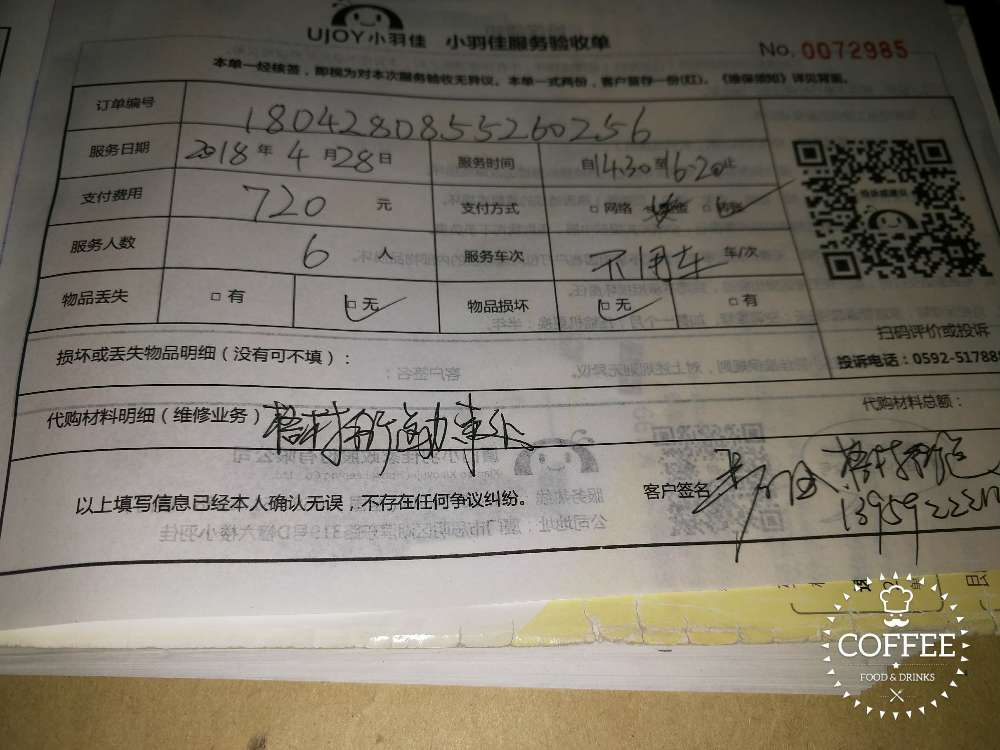 UJOY小羽佳 小羽佳服务验收单 No. 0072985
本单一经核签，即视为对本次服务验收无异议。本单一式两份，客户留存一份(红)。《维保须知》详见背面。
订单编号 1804280855260256
服务日期 2018年4月28日 服务时间 自14.30至16.20止
支付费用 720元 支付方式 □网络
服务人数 6人 服务车次 不用车 车/次
物品丢失 □有 □无 物品损坏 □无 □有
扫码评价或投诉
损坏或丢失物品明细（没有可不填）：
投诉电话：0592-51788
代购材料明细（维修业务）
代购材料总额：
以上填写信息已经本人确认无误，不存在任何争议纠纷。
客户签名
COFFEE
FOOD & DRINKS